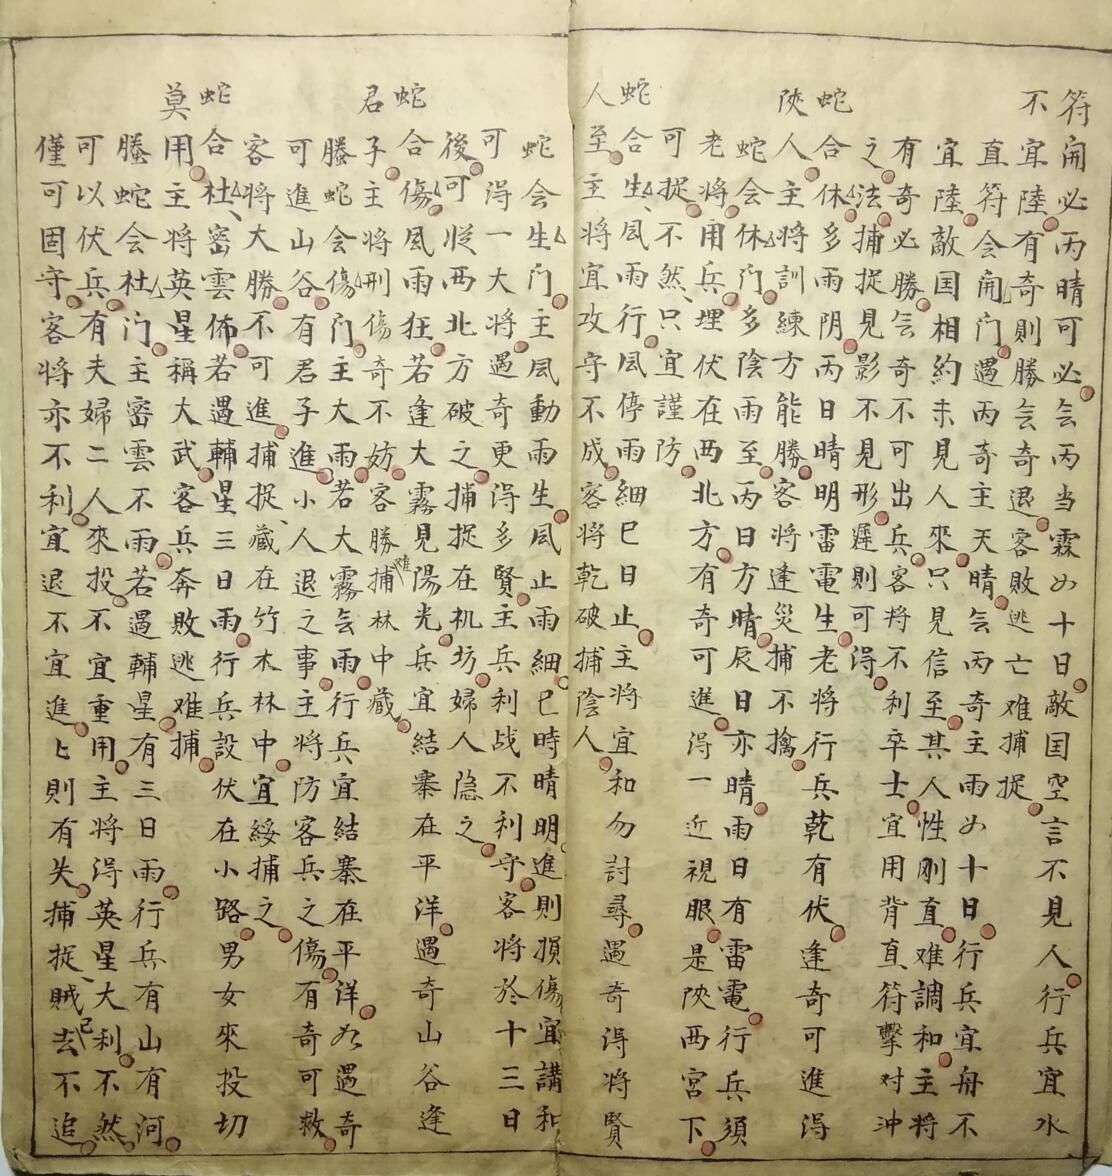 符開必丙晴可必无丙当霖如十日敵国空言不見人行兵宜水
不宜陸有奇則勝无奇退客敗逃亡难捕捉
直符会開门遇丙奇主天晴无丙奇主雨如十日行兵宜舟不
宜陸敵国相約未見人來只見信至其人性刚直难調和主將
有奇必勝无奇不可出兵客將不利卒士宜用背直符擊对沖
之法捕捉見影不見形遲則可得
蛇合休多雨阴丙日晴明雷電生老將行兵乾有伏逢奇可進得
陝人主將訓練方能勝客將逢災捕不擒
蛇会休门多陰雨至丙日方晴辰日亦晴雨日有雷電行兵須
老將用兵埋伏在西北方有奇可進得一近視眼是陝西宮下
可捉不然只宜謹防
蛇合生風雨行風停雨細巳日止主將宜和勿討尋遇奇得將賢
人至主將宜攻守不成客將乾破捕陰人
蛇会生门主風動雨生風止雨細巳時晴明進則損傷宜講和
可得一大將遇奇更得多賢主兵利战不利守客將於十三日
後可從西北方破之捕捉在机坊婦人隐之
蛇合傷風雨狂若逢大霧見陽光兵宜結寨在平洋遇奇山谷逢
君子主將刑傷奇不妨客勝难捕林中藏
螣蛇会傷门主大雨若大霧无雨行兵宜結寨在平洋如遇奇
可進山谷有君子進小人退之事主將防客兵之傷有奇可救
客將大勝不可進捕捉藏在竹木林中宜緩捕之
蛇合杜密雲佈若遇輔星三日雨行兵設伏在小路男女來投切
莫用主將英星稱大武客兵奔敗逃难捕
螣蛇会杜门主密雲不雨若遇輔星有三日雨行兵有山有河
可以伏兵有夫婦二人來投不宜重用主將得英星大利不然
僅可固守客將亦不利宜退不宜進匕則有失捕捉賊已去不追